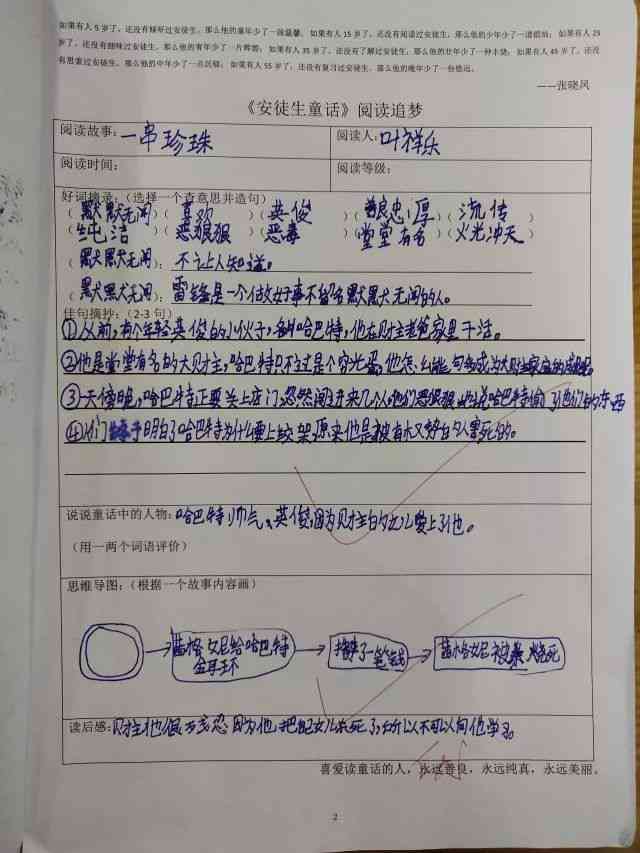 如果有人5岁了，还没有倾听过安徒生，那么他的童年少了一段温馨；如果有人15岁了，还没有阅读过安徒生，那么他的少年少了一道银灿；如果有人25
岁了，还没有细味过安徒生，那么他的青年少了一片辉碧；如果有人35岁了，还没有了解过安徒生，那么他的壮年少了一种丰饶；如果有人45岁了，还没
有思索过安徒生，那么他的中年少了一点沉郁；如果有人55岁了，还没有复习过安徒生，那么他的晚年少了一份悠远。
——张晓风
《安徒生童话》阅读追梦
阅读故事：一串珍珠 阅读人：叶祥乐
阅读时间： 阅读等级：
好词摘录：（选择一个查意思并造句）
（默默无闻）（喜欢）（英俊）（善良忠厚）（流传）
（纯洁）（恶狠狠）（恶毒）（堂堂有名）（火光冲天）
（默默无闻）：不让人知道。
（默默无闻）：雷锋是一个做好事不留名默默无闻的人。
佳句摘抄：（2-3句）
①从前，有个年轻英俊的小伙子，名叫哈巴特，他在财主老爸家里干活。
②他是堂堂有名的大财主，哈巴特只不过是个穷光蛋，他怎么能句多成为大财主家庭的
③天傍晚，哈巴特正要关上店门，忽然闯进来几个人，他们恶狠狠地说哈巴特偷了他们的东西
④人们终于明白了哈巴特为什么要上绞架，原来他是被有木又够白勺人害死的。
说说童话中的人物：哈巴特帅气、英俊，因为财主白勺女儿爱上了他。
（用一两个词语评价）
思维导图：（根据一个故事内容画）
茜格女尼给哈巴特
金耳环
挣了一笔钱
茜格女尼被烧死
读后感：财主他很 因为他把自己女儿杀死了，所以不可以向他学习。
喜爱读童话的人，永远善良，永远纯真，永远美丽。
2